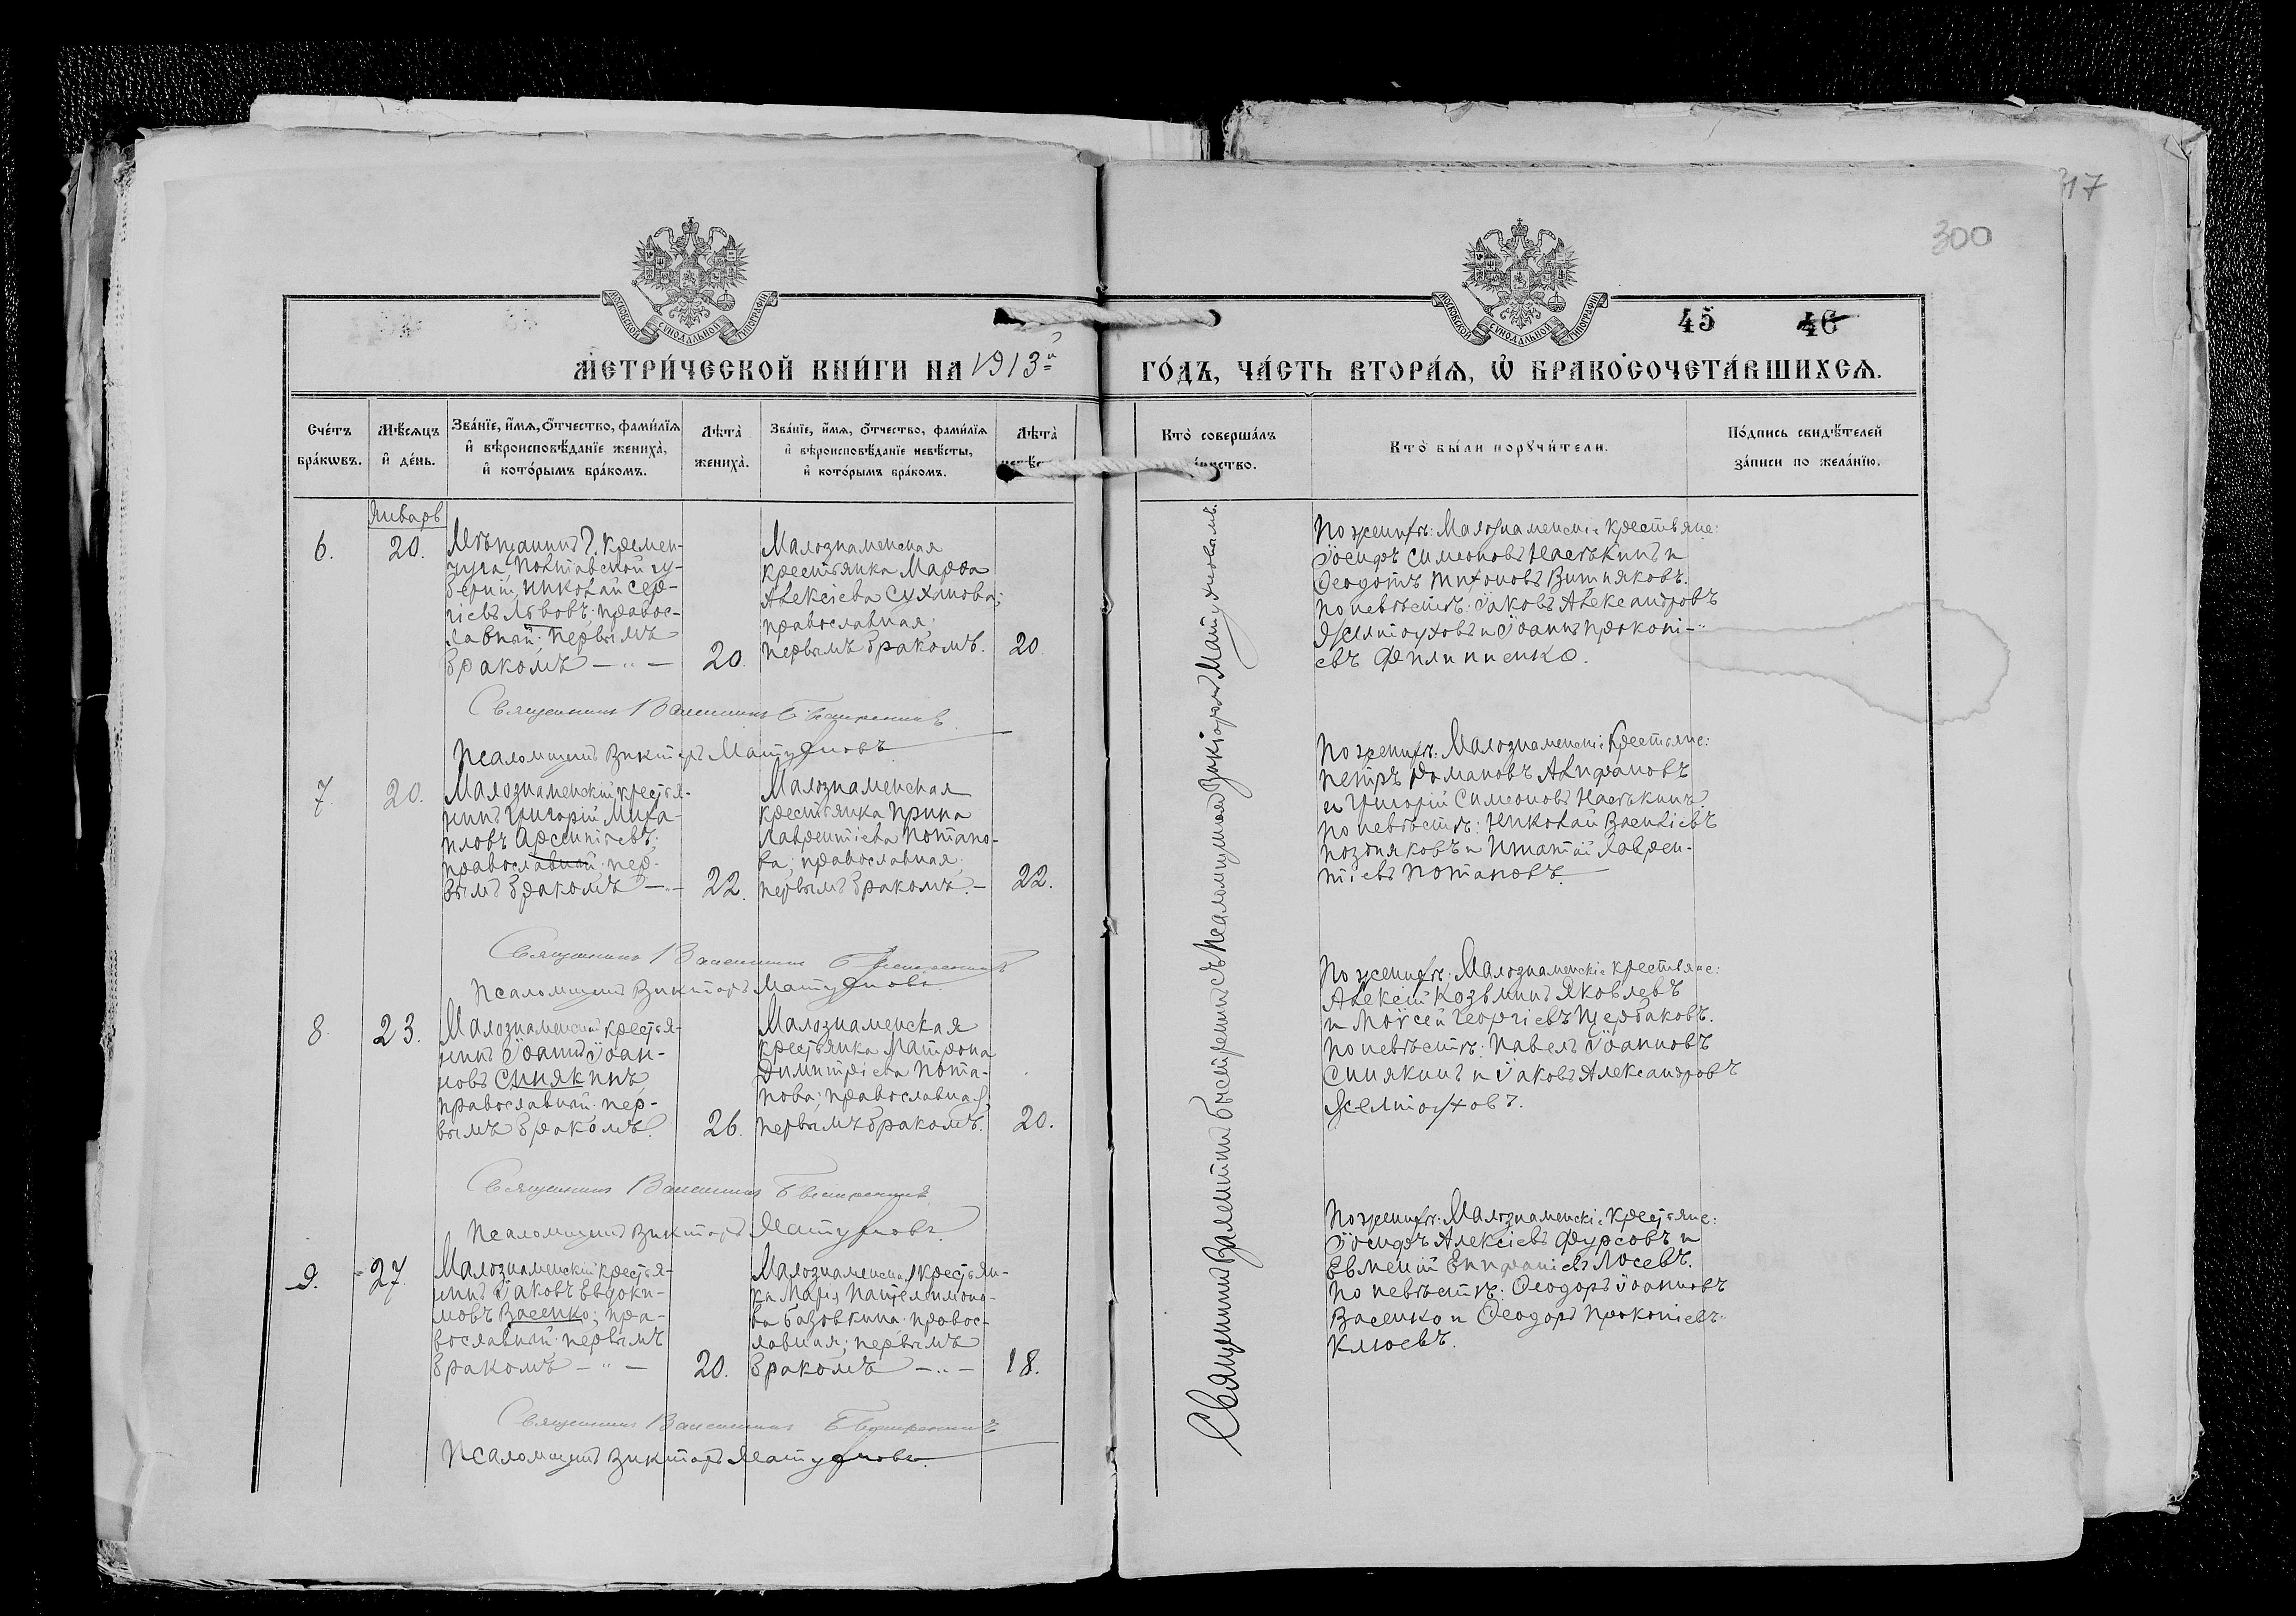 317
300
МОСКОВСКОЙ СУНОДАЛЬНОЙ ТИПОГРАФІИ
МОСКОВСКОЙ СУНОДАЛЬНОЙ ТИПОГРАФІИ
45 46
МЕТРИ́ЧЕСКОЙ КНИ́ГИ НА 1913й ГО́ДЪ, ЧА́СТЬ ВТОРА́Ѧ, Ѡ БРАКОСОЧЕТА́ВШИХСѦ.
Сче́тъ бра́кѡвъ.
Мѣ́сяцъ и де́нь.
Зва́нїе, и́мѧ, о́тчество, фами́лїѧ и вѣроисповѣ́данїе жениха̀, и кото́рымъ бра́комъ.
Лѣта̀ жениха̀.
Зва́нїе, и́мѧ, о́тчество, фами́лїѧ и вѣроисповѣ́данїе невѣ́сты, и кото́рымъ бра́комъ.
Лѣта̀
Кто̀ соверша́лъ
Кто̀ бы́ли порꙋчи́тели.
По́дпись свидѣ́телей за́писи по жела́нїю.
Январь
6.
20.
Мѣщанинъ г. Кремен-
чуга, Полтавской гу-
берніи, Николай Сер-
гіевъ Львовъ; правос-
лавный; первымъ
бракомъ — " —
20.
Малознаменская
крестьянка Марѳа
Алексіева Суханова;
православная;
первымъ бракомъ.
20
По женихѣ: Малознаменскіе крестьяне:
Іосифъ Симеоновъ Настькинъ и
Ѳеодотъ Тихоновъ Витняковъ.
По невѣстѣ: Іаковъ Александровъ
Желтоуховъ и Іоаннъ Прокопі-
евъ Филипенко.
Священникъ Валентинъ Быстренинъ
Псаломщикъ Викторъ Матухновъ
7.
20.
Малознаменскій крестья-
нинъ Григорій Миха-
иловъ Арсентіевъ;
православный; пер-
вымъ бракомъ —"—
22.
Малознаменская
крестьянка Ирина
Лаврентіева Потапо-
ва; православная;
первымъ бракомъ. —
22.
По женихѣ: Малознаменскіе крестьяне:
Петръ Романовъ Алифановъ
и Григорій Симеоновъ Настькинъ.
По невѣстѣ: Николай Васильевъ
Поздняковъ и Игнатій Лаврен-
тіевъ Потаповъ.
Священникъ Валентинъ Быстренинъ
Псаломщикъ Викторъ Матухновъ.
8.
23.
Малознаменскій крестья-
нинъ Іоаннъ Іоан-
новъ Синякинъ,
православный; пер-
вымъ бракомъ.
26.
Малознаменская
крестьянка Матрона
Димитріева Пота-
пова; православная;
первымъ бракомъ.
20.
По женихѣ: Малознаменскіе крестьяне:
Алексій Козьминъ Яковлевъ
и Моѵсей Георгіевъ Щербаковъ.
По невѣстѣ: Павелъ Іоанновъ
Синякинъ и Іаковъ Александровъ
Желтоуховъ.
Священникъ Валентинъ Быстренинъ
Псаломщикъ Викторъ Матухновъ.
9.
27.
Малознаменскій крестья-
нинъ Іаковъ Евдоки-
мовъ Васенко; пра-
вославный; первымъ
бракомъ — " —
20.
Малознаменская крестьян-
ка Марія Пантелимоно-
ва Базовкина; правос-
лавная; первымъ
бракомъ — " —
18.
По женихѣ: Малознаменскіе крестьяне:
Іосифъ Алексіевъ Фурсовъ и
Евмений Епифаніевъ Лосевъ.
По невѣстѣ: Ѳеодоръ Іоанновъ
Васенко и Ѳеодоръ Прокопіевъ
Клюевъ.
Священникъ Валентинъ Быстренинъ
Псаломщикъ Викторъ Матухновъ.
Священникъ Валентинъ Быстренинъ съ псаломщикомъ Викторомъ Матухновымъ.